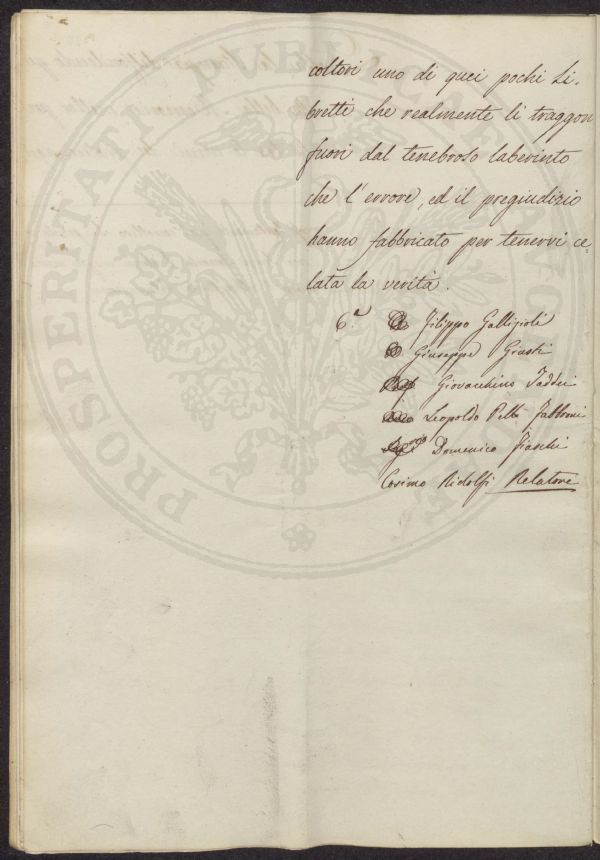 coltori uno di quei pochi Li-
bretti che realmente li traggon
fuori dal tenebroso laberinto
che l'errore, ed il pregiudizio
hanno fabbricato per tenervi ce=
lata la verità.
6.a Filippo Gallizioli
Giuseppe Giusti
Giovacchino Taddei
Leopoldo Pelli Fabbroni
Domenico Fiaschi
Cosimo Ridolfi Relatore
PROSPERITATI PUBLICAE